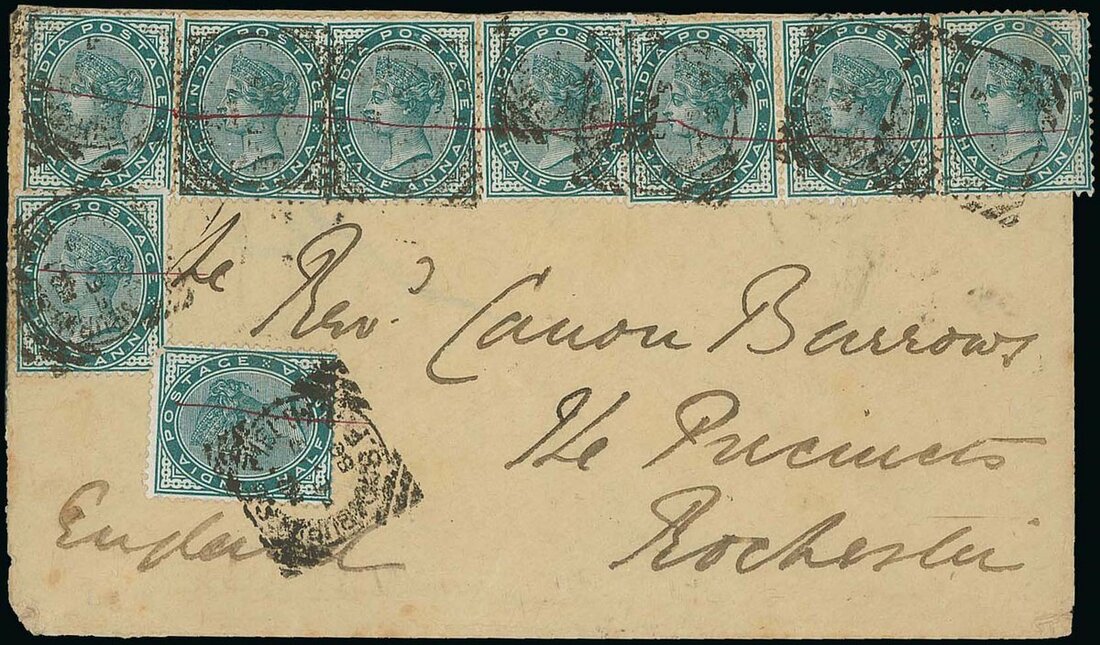 INDIA POSTAGE HALF ANNA
INDIA POSTAGE HALF ANNA
INDIA POSTAGE HALF ANNA
INDIA POSTAGE HALF ANNA
INDIA POSTAGE HALF ANNA
INDIA POSTAGE HALF ANNA
INDIA POSTAGE HALF ANNA
INDIA POSTAGE HALF ANNA
The
Revd. Canon Barrows
The Precincts
INDIA POSTAGE HALF ANNA
Rochester
England